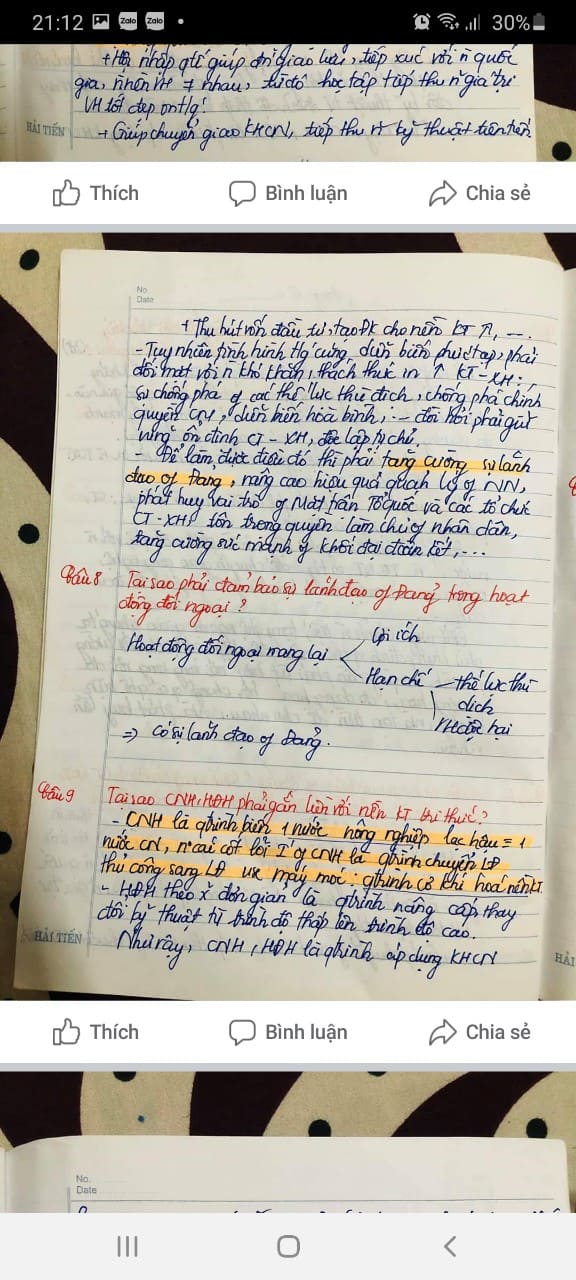 21:12
Zalo
Zalo
30%
+ Hội nhập qtế giúp đn giao lưu, tiếp xúc với n quốc
gia, nền VH ≠ nhau, từ đó học tập tiếp thu n giá trị
VH tốt đẹp
HẢI TIẾN
+ Giúp chuyển giao KHCN, tiếp thu n kỹ thuật tiên tiến.
Thích
Bình luận
Chia sẻ
No
Date
+ Thu hút vốn đầu tư, tạo ĐK cho nền KT
- Tuy nhiên tình hình diễn biến phức tạp, phải
đối mặt với n khó khăn, thách thức in ↑ KT-XH:
sự chống phá of các thế lực thù địch, chống phá chính
quyền diễn biến hoà bình, đòi hỏi phải giữ
vững ổn định CT - XH, độc lập tự chủ.
- Để làm được điều đó thì phải tăng cường sự lãnh
đạo of Đảng, nâng cao hiệu quả quản lý of NN,
phát huy vai trò of Mặt trận Tổ quốc và các tổ chức
CT-XH, tôn trọng quyền làm chủ of nhân dân,
tăng cường sức mạnh of khối đại đoàn kết,...
Câu 8 Tại sao phải đảm bảo sự lãnh đạo of Đảng trong hoạt
động đối ngoại?
Hoạt động đối ngoại mang lại
Lợi ích
Hạn chế
thế lực thù
địch
⇒ Có sự lãnh đạo of Đảng.
Câu 9 Tại sao CNH, HĐH phải gắn liền với nền KT tri thức?
- CNH là qtrình biến 1 nước nông nghiệp lạc hậu = 1
nước CN, cái cốt lõi of CNH là qtrình chuyển LĐ
thủ công sang LĐ máy móc; qtrình cơ khí hoá nền KT.
- HĐH theo đơn giản là qtrình nâng cấp thay
đổi kỹ thuật từ trình độ thấp lên trình độ cao.
HẢI TIẾN
Như vậy, CNH, HĐH là qtrình áp dụng KHCN
HẢI
Thích
Bình luận
Chia sẻ
No.
Date